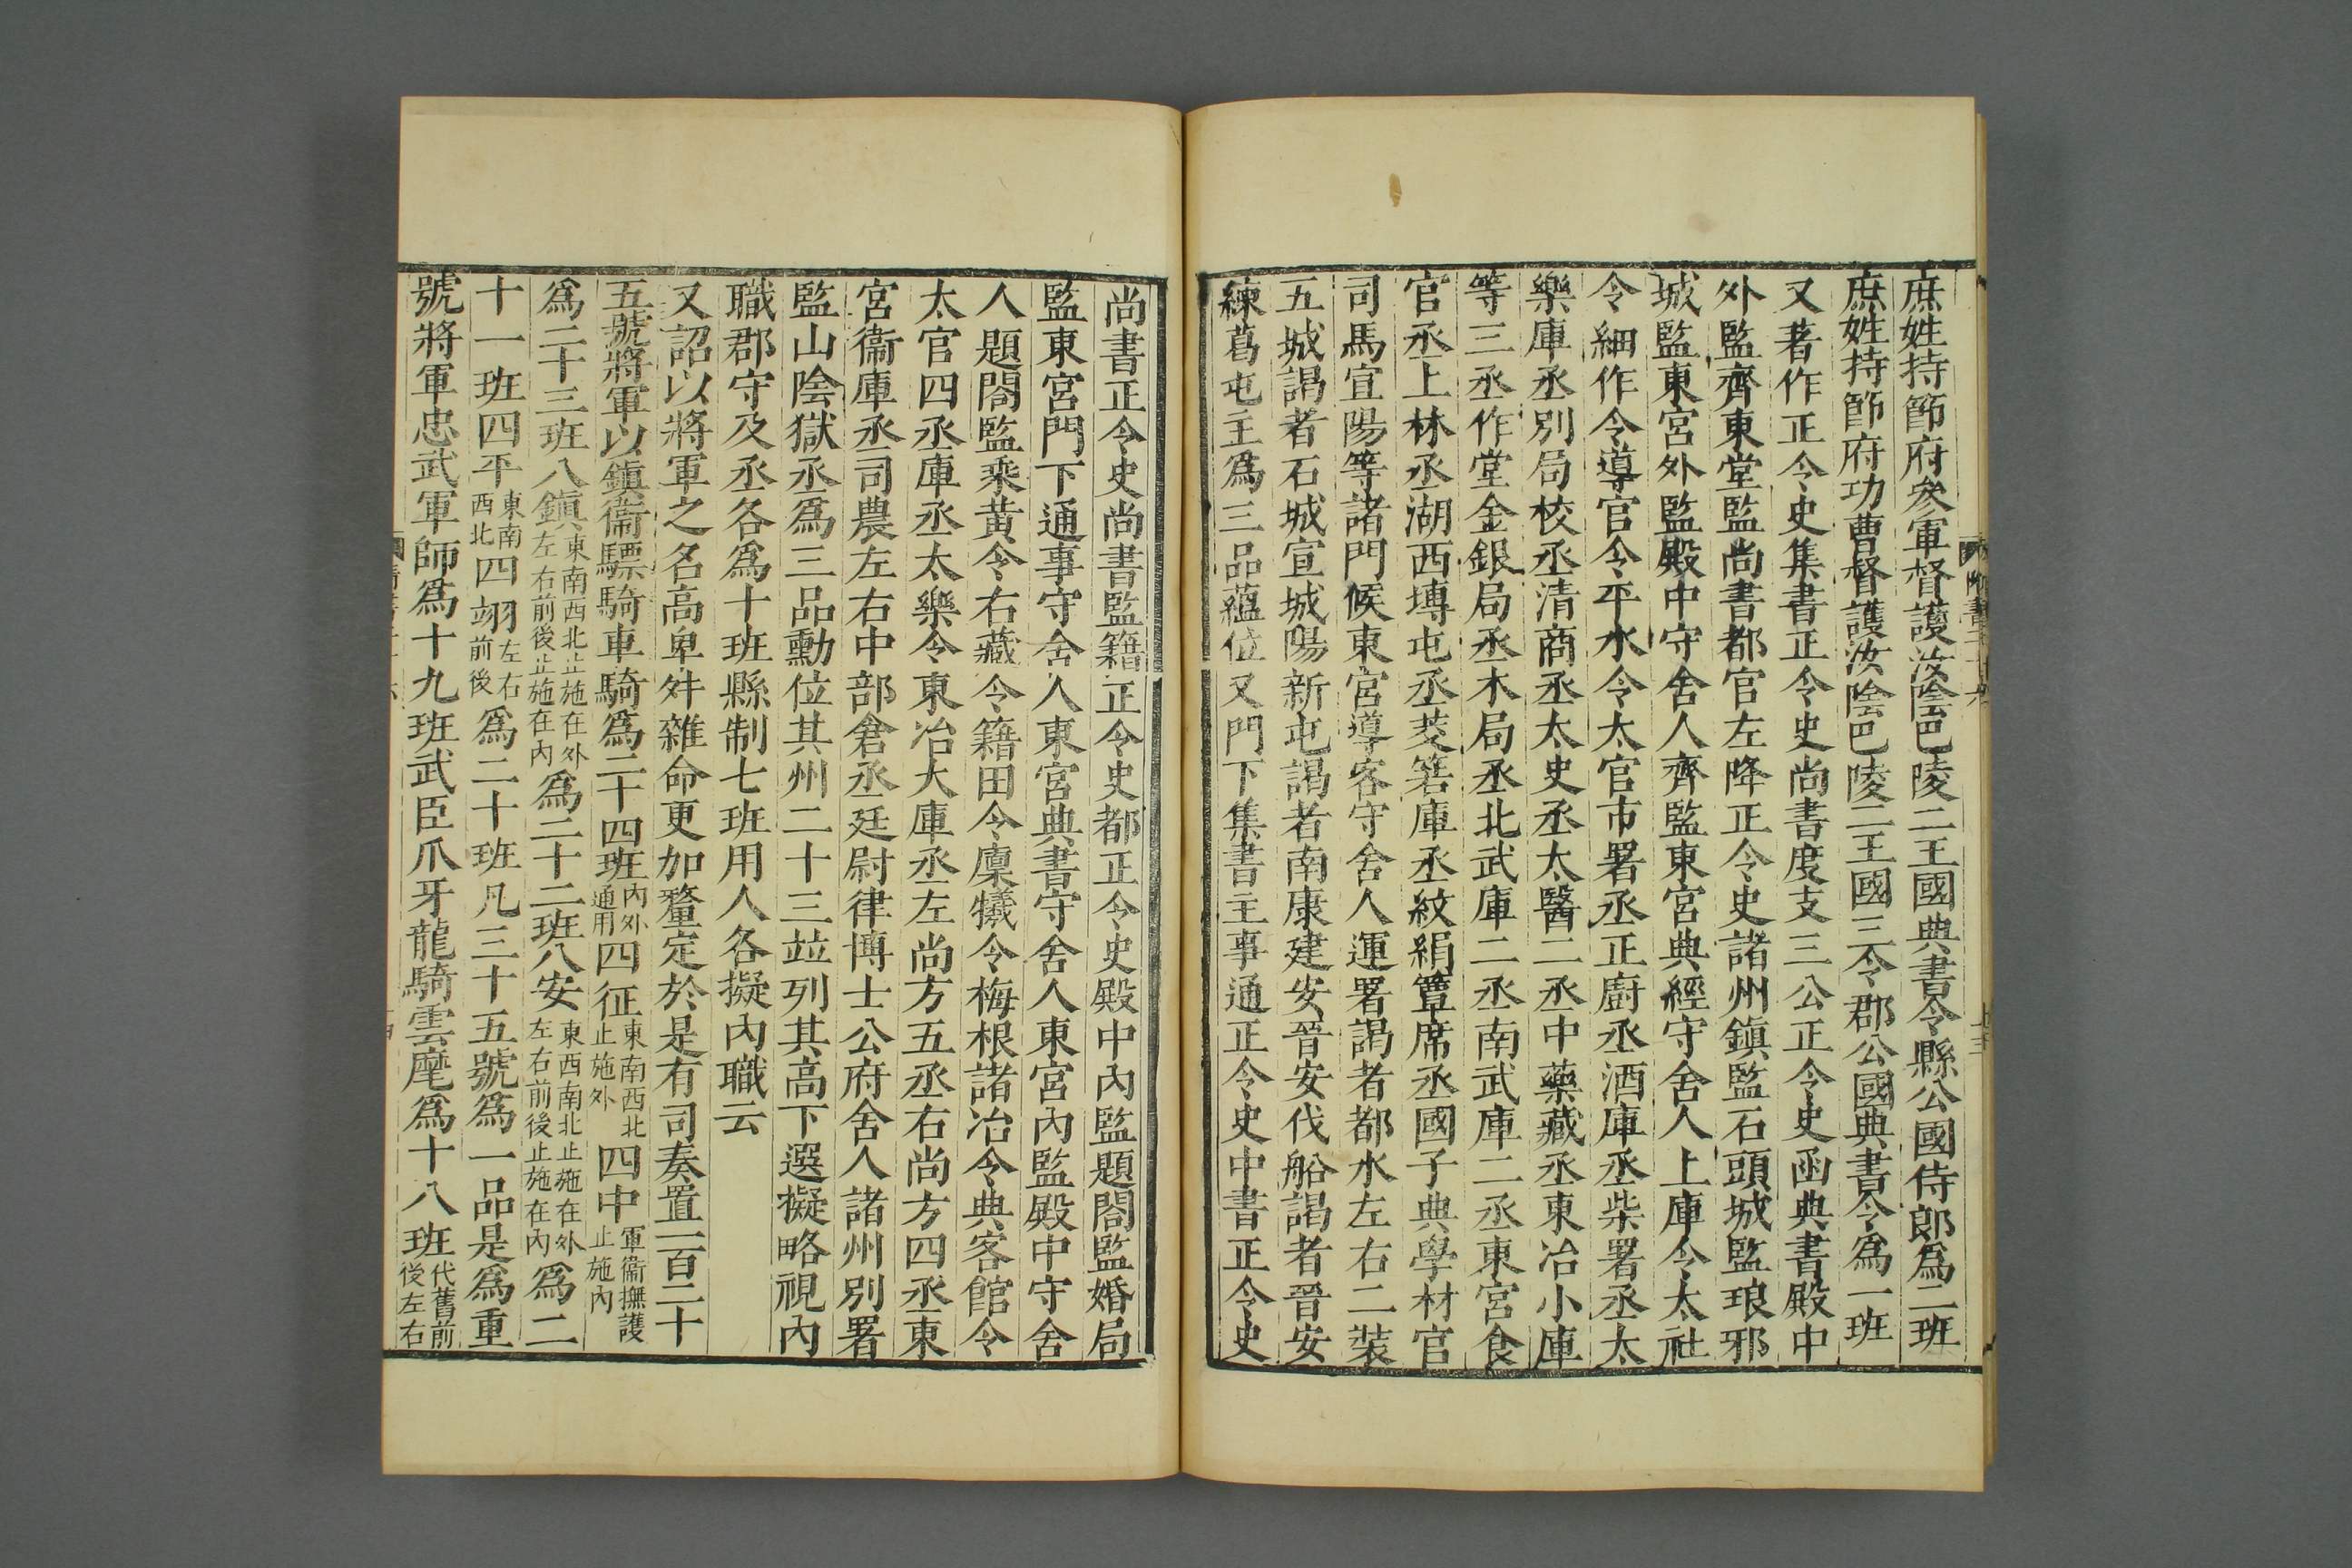 庶姓持節府參軍督護汝陰巴陵二王國典書令縣公國侍郎爲二班
庶姓持節府功曹督護汝陰巴陵二王國三令郡公國典書令爲一班
又著作正令史集書正令史尚書度支三公正令史函典書殿中
外監齊東堂監尚書都官左降正令史諸州鎮監石頭城監琅邪
城監東宮外監殿中守舍人齊監東宮典經守舍人上庫令太社
令細作令導官令平水令太官市署丞正廚丞酒庫丞柴署丞太
樂庫丞別局校丞清商丞太史丞太醫二丞中藥藏丞東冶小庫
等三丞作堂金銀局丞木局丞北武庫二丞南武庫二丞東宮食
官丞上林丞湖西塼屯丞茭箬庫丞紋絹簟席丞國子典學材官
司馬宣陽等諸門候東宮導客守舍人運署謁者都水左右二裝
五城謁者石城宣城陽新屯謁者南康建安晉安伐船謁者晉安
練葛屯主爲三品蘊位又門下集書主事通正令史中書正令史
尚書正令史尚書監籍正令史都正令史殿中內監題閤監婚局
監東宮門下通事守舍人東宮典書守舍人東宮內監殿中守舍
人題閤監乘黃令右藏令籍田令廩犧令梅根諸冶令典客館令
太官四丞庫丞太樂令東冶大庫丞左尚方五丞右尚方四丞東
宮衞庫丞司農左右中部倉丞廷尉律博士公府舍人諸州別署
監山陰獄丞爲三品勳位其州二十三竝列其高下選擬略視內
職郡守及丞各爲十班縣制七班用人各擬內職云
又詔以將軍之名高卑舛雜命更加釐定於是有司奏置一百二十
五號將軍以鎮衞驃騎車騎爲二十四班內外通用四征東南西北止施外四中軍衞撫護止施內
爲二十三班八鎮東南西北止施在外左右前後止施在內爲二十二班八安東西南北止施在外左右前後止施在內爲二
十一班四平東南西北四翊左右前後爲二十班凡三十五號爲一品是爲重
號將軍忠武軍師爲十九班武臣爪牙龍騎雲麾爲十八班代舊前後左右